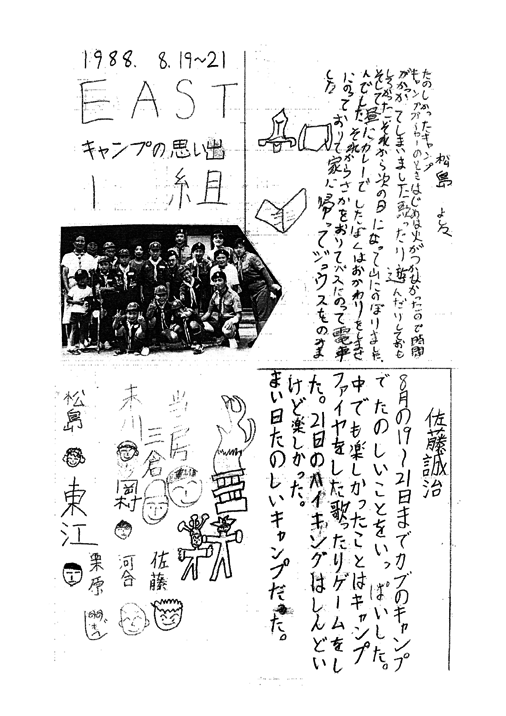 1988. 8.19~21
EAST
キャンプの思い出
1 組
たのしかったキャンプ
松島
キャンプファイヤーのときはじめは火がつかなかったので時間
がかかってしまいました歌ったり遊んだりしておも
しろかった。それから次の日になって山にのぼりました。
そして昼にカレーでしたぼくはおかわりをしませ
んでした。それからさかをおりてバスにのって電車
にのっておりて家に帰ってジュウスをのみま
した。
佐藤誠治
8月の19~21日までカブのキャンプ
でたのしいことをいっぱいした。
中でも楽しかったことはキャンプ
ファイヤをした歌ったりゲームをし
た。21日のハイキングはしんどい
けど楽しかった。
まい日たのしいキャンプだった。
当房
三倉
末川
岡村
松島
東江
佐藤
河合
栗原